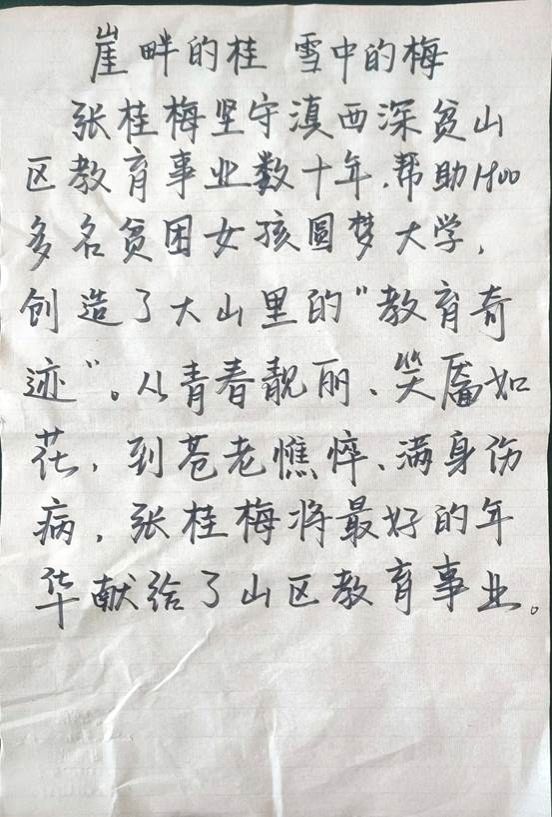 崖畔的桂 雪中的梅
张桂梅坚守滇西深贫山
区教育事业数十年,帮助1800
多名贫困女孩圆梦大学,
创造了大山里的"教育奇
迹"。从青春靓丽、笑靥如
花,到苍老憔悴、满身伤
病,张桂梅将最好的年
华献给了山区教育事业。